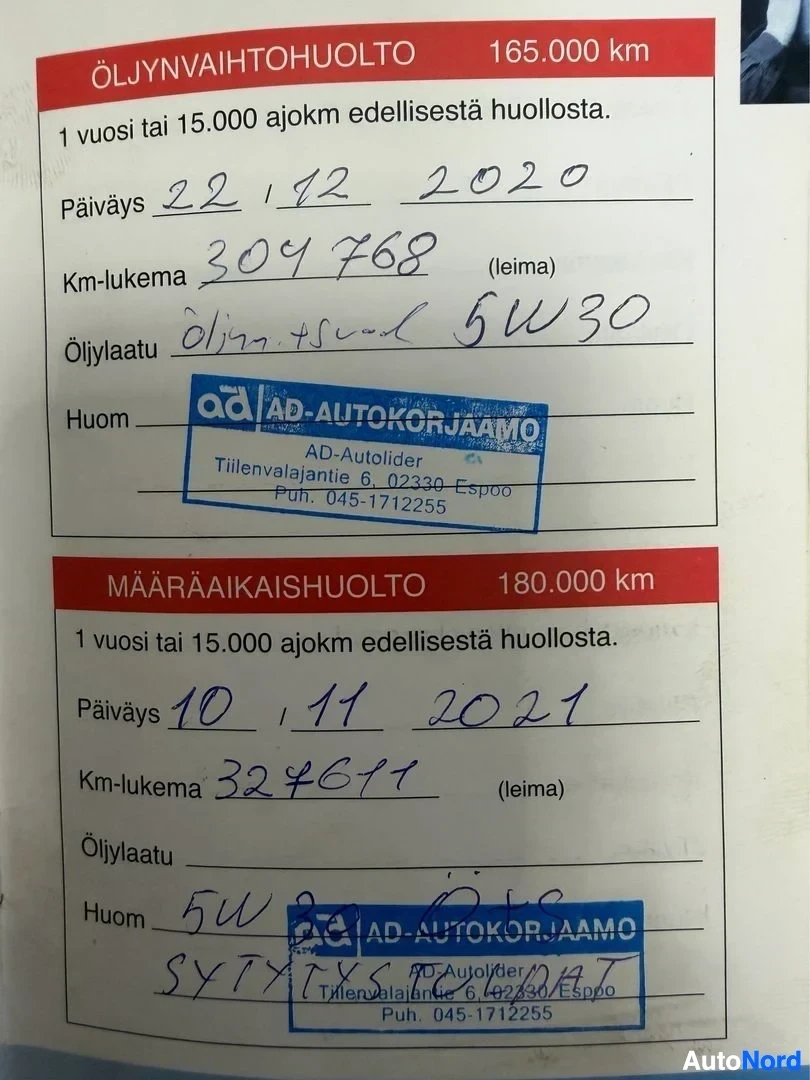 ÖLJYNVAIHTOHUOLTO 165.000 km
1 vuosi tai 15.000 ajokm edellisestä huollosta.
Päiväys 22 / 12 2020
Km-lukema 304 768 (leima)
Öljylaatu 5W30
Huom
ad AD-AUTOKORJAAMO
AD-Autolider
Tiilenvalajantie 6, 02330 Espoo
Puh. 045-1712255
MÄÄRÄAIKAISHUOLTO 180.000 km
1 vuosi tai 15.000 ajokm edellisestä huollosta.
Päiväys 10 / 11 2021
Km-lukema 327611 (leima)
Öljylaatu
Huom 5W 30 Ö+S
ad AD-AUTOKORJAAMO
SYTYTYSTULPAT
AD-Autolider
Tiilenvalajantie 6, 02330 Espoo
Puh. 045-1712255
AutoNord